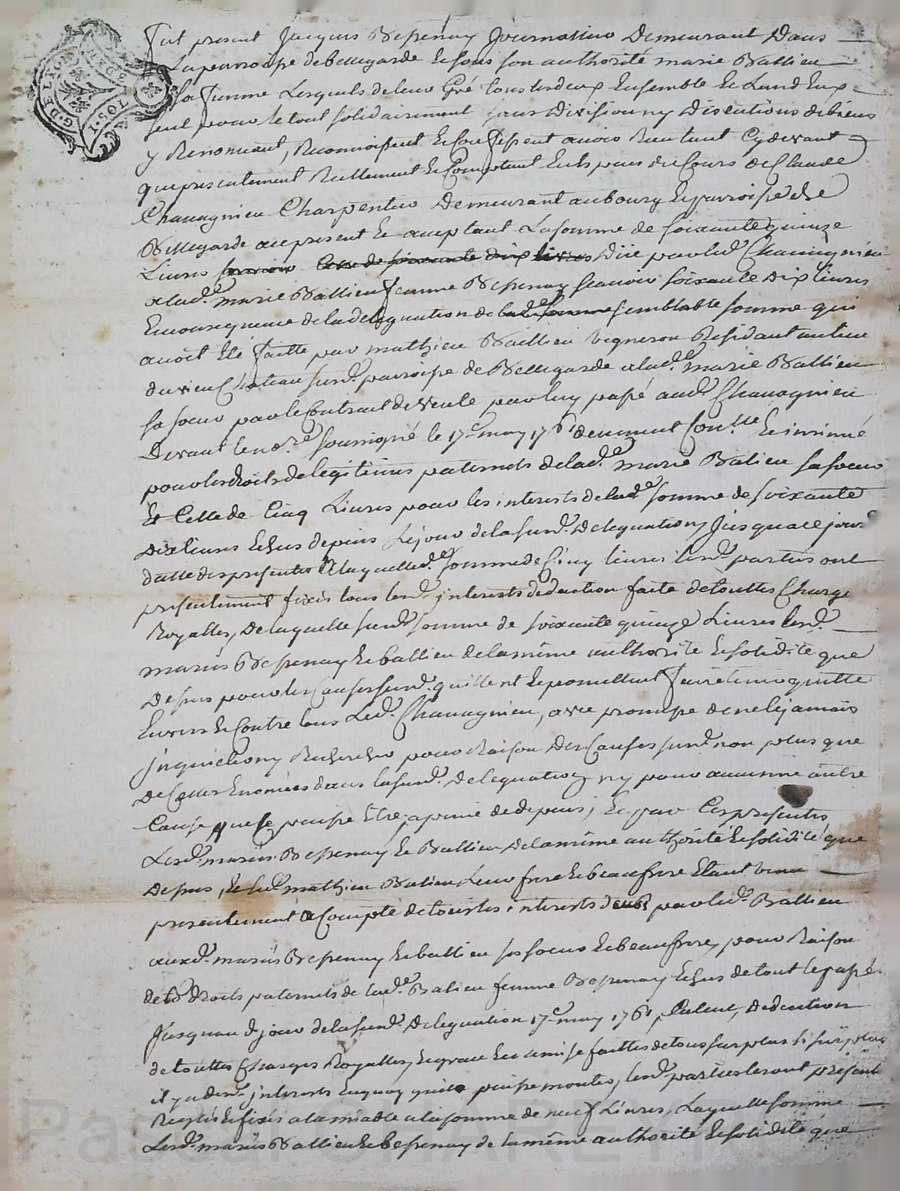 Fut present Jacques Bespenay Journallier Demeurant Dans
La parroisse de bellegarde Et sous son authorité marie Battieu
Sa femme Lesquels de leur Gré tous les deux Ensemble Et Lun d Eux
seul pour le tout solidairement sans Division ny Discutions de biens
y Renoncant, Reconnoissent Et Confessent avoir Reu tant Cydevant
que presentement Reellement Et Comptant Et des pair du Cours de Claude
Chavagnieu Charpentier Demeurant au bourg Et parroisse de
Bellegarde aux present Et acceptant La somme de soixante quinze
Livres Due par led. Chavagnieu
a lad. marie Battieu femme Bespenay scavoir soixante Dix Livres
En consequence de la deleguation de semblable somme qui
avoit Eté faitte par mathieu Battieu vigneron Residant au lieu
du vieu Chateau sud. parroisse de Bellegarde a lad. marie Battieu
sa soeur par le Contrait de vente par luy passé aud. Chavagnieu
Devant le no.re soussigné le 17e may 1761 deuement Con.llé Et insinué
pour les droits de legitimes paternels de lad. marie Batieu sa soeur
Et Celle de Cinq Livres pour les interests de lad. somme de soixante
Dix Livres Echus depuis Le jour de la sud. Deleguation Jusqua ce jour
datte des presentes a laquelle d. somme de Cinq livres Les d. parties ont
presentement fixés tous les d. interests deduction faite de touttes Charge
Royalles, De laquelle sud. somme de soixante quinze Livres les d.
mariés Bespenay Et battieu de la même authorité Et solidité que
Dessus pour les Causes sud. quittent Et promettent faire tenir quitte
Envers Et Contre tous Led. Chavagnieu, avec promesse de ne le jamais
Jnquieter ny Rechercher pour Raison Des Causes sud. non plus que
De Celles Enoncées dans la sud. Deleguation ny pour aucunne autre
Cause que se puisse Etre a peine de depens; Et par Ces presentes
Les d. mariés Bespenay Et Battieu De la même authorité Et solidité que
Dessus, Et led. mathieu Batieu Leur frere Et beaufrere Etant venu
presentement a Compte de tous les interests deus par led. Battieu
aux d. mariés Bespenay Et battieu ses soeur Et beaufrere, pour Raison
des d. droits paternels de lad. Batieu femme Bespenay Echus de tout le passé
Jusquau d. jour de la sud. Deleguation 17e may 1761, Deduction
de touttes Charges Royalles, Et grace Et remise faittes de tous surplus si surplus
il y a des d. interests En quoy qu'ils puisse monter, les d. parties les ont present.
Reglés Et fixés a lamiable a la somme de neuf Livres, Laquelle somme
Les d. mariés Battieu Et Bespenay de la même authorité Et solidité que